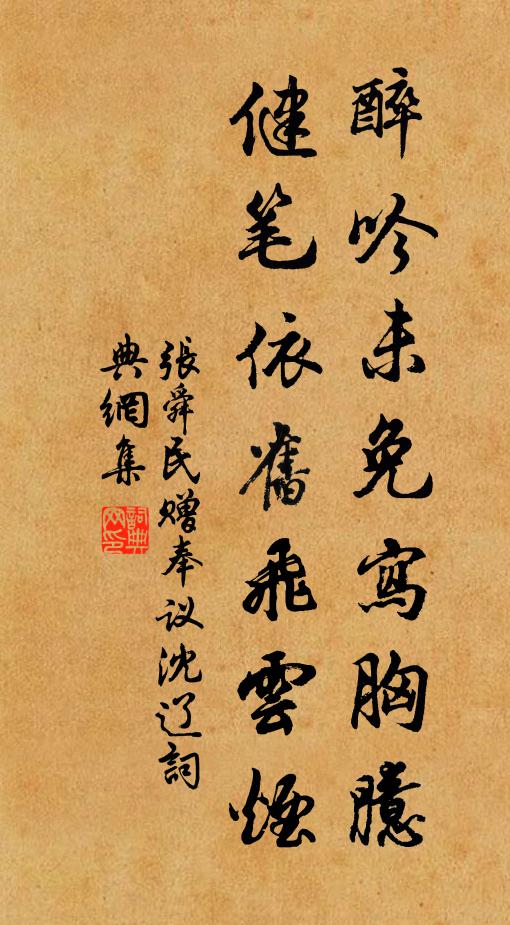 醉吟未免寫胸臆
健笔依舊飛雲煙
張舜民赠奉议沈辽詞
典網集